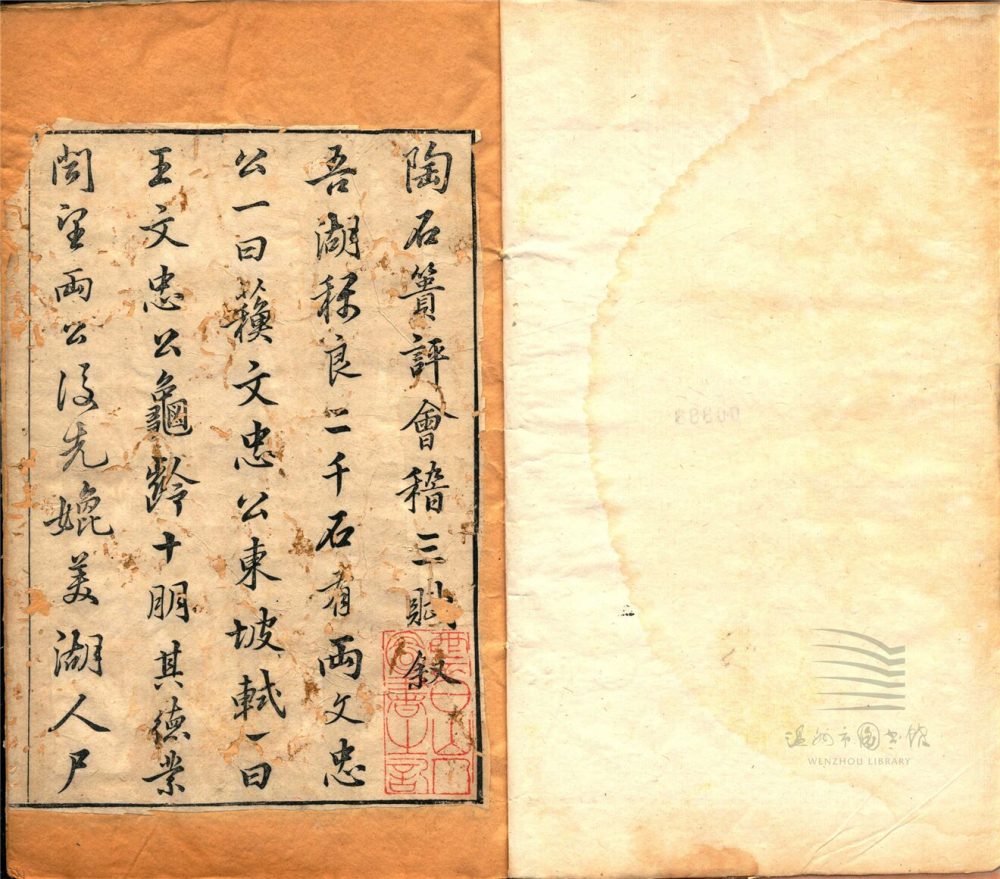 陶石簣評會稽三賦叙
吾湖稱良二千石有兩文忠
公一曰蘓文忠公東坡軾一曰
王文忠公龜齡十朋其德業
聞望兩公後先媲美湖人尸
温州市图书馆
WENZHOU LIBRARY